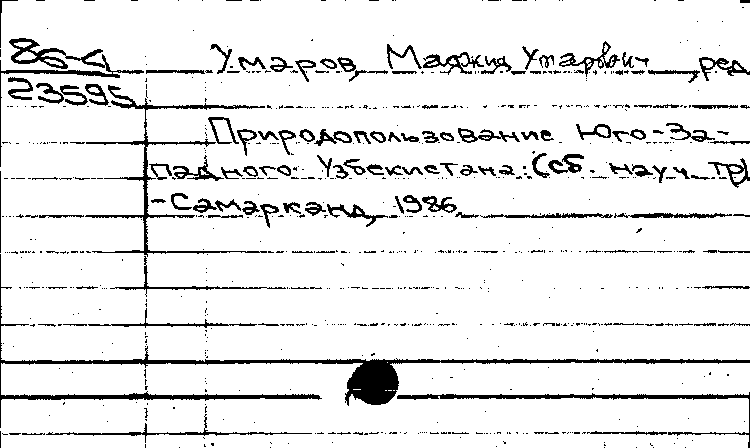 86-4
23595
Умаров, Маджид Умарович, ред
Природопользование Юго-За-
падного Узбекистана: (сб. науч. тр)
-Самарканд, 1986.